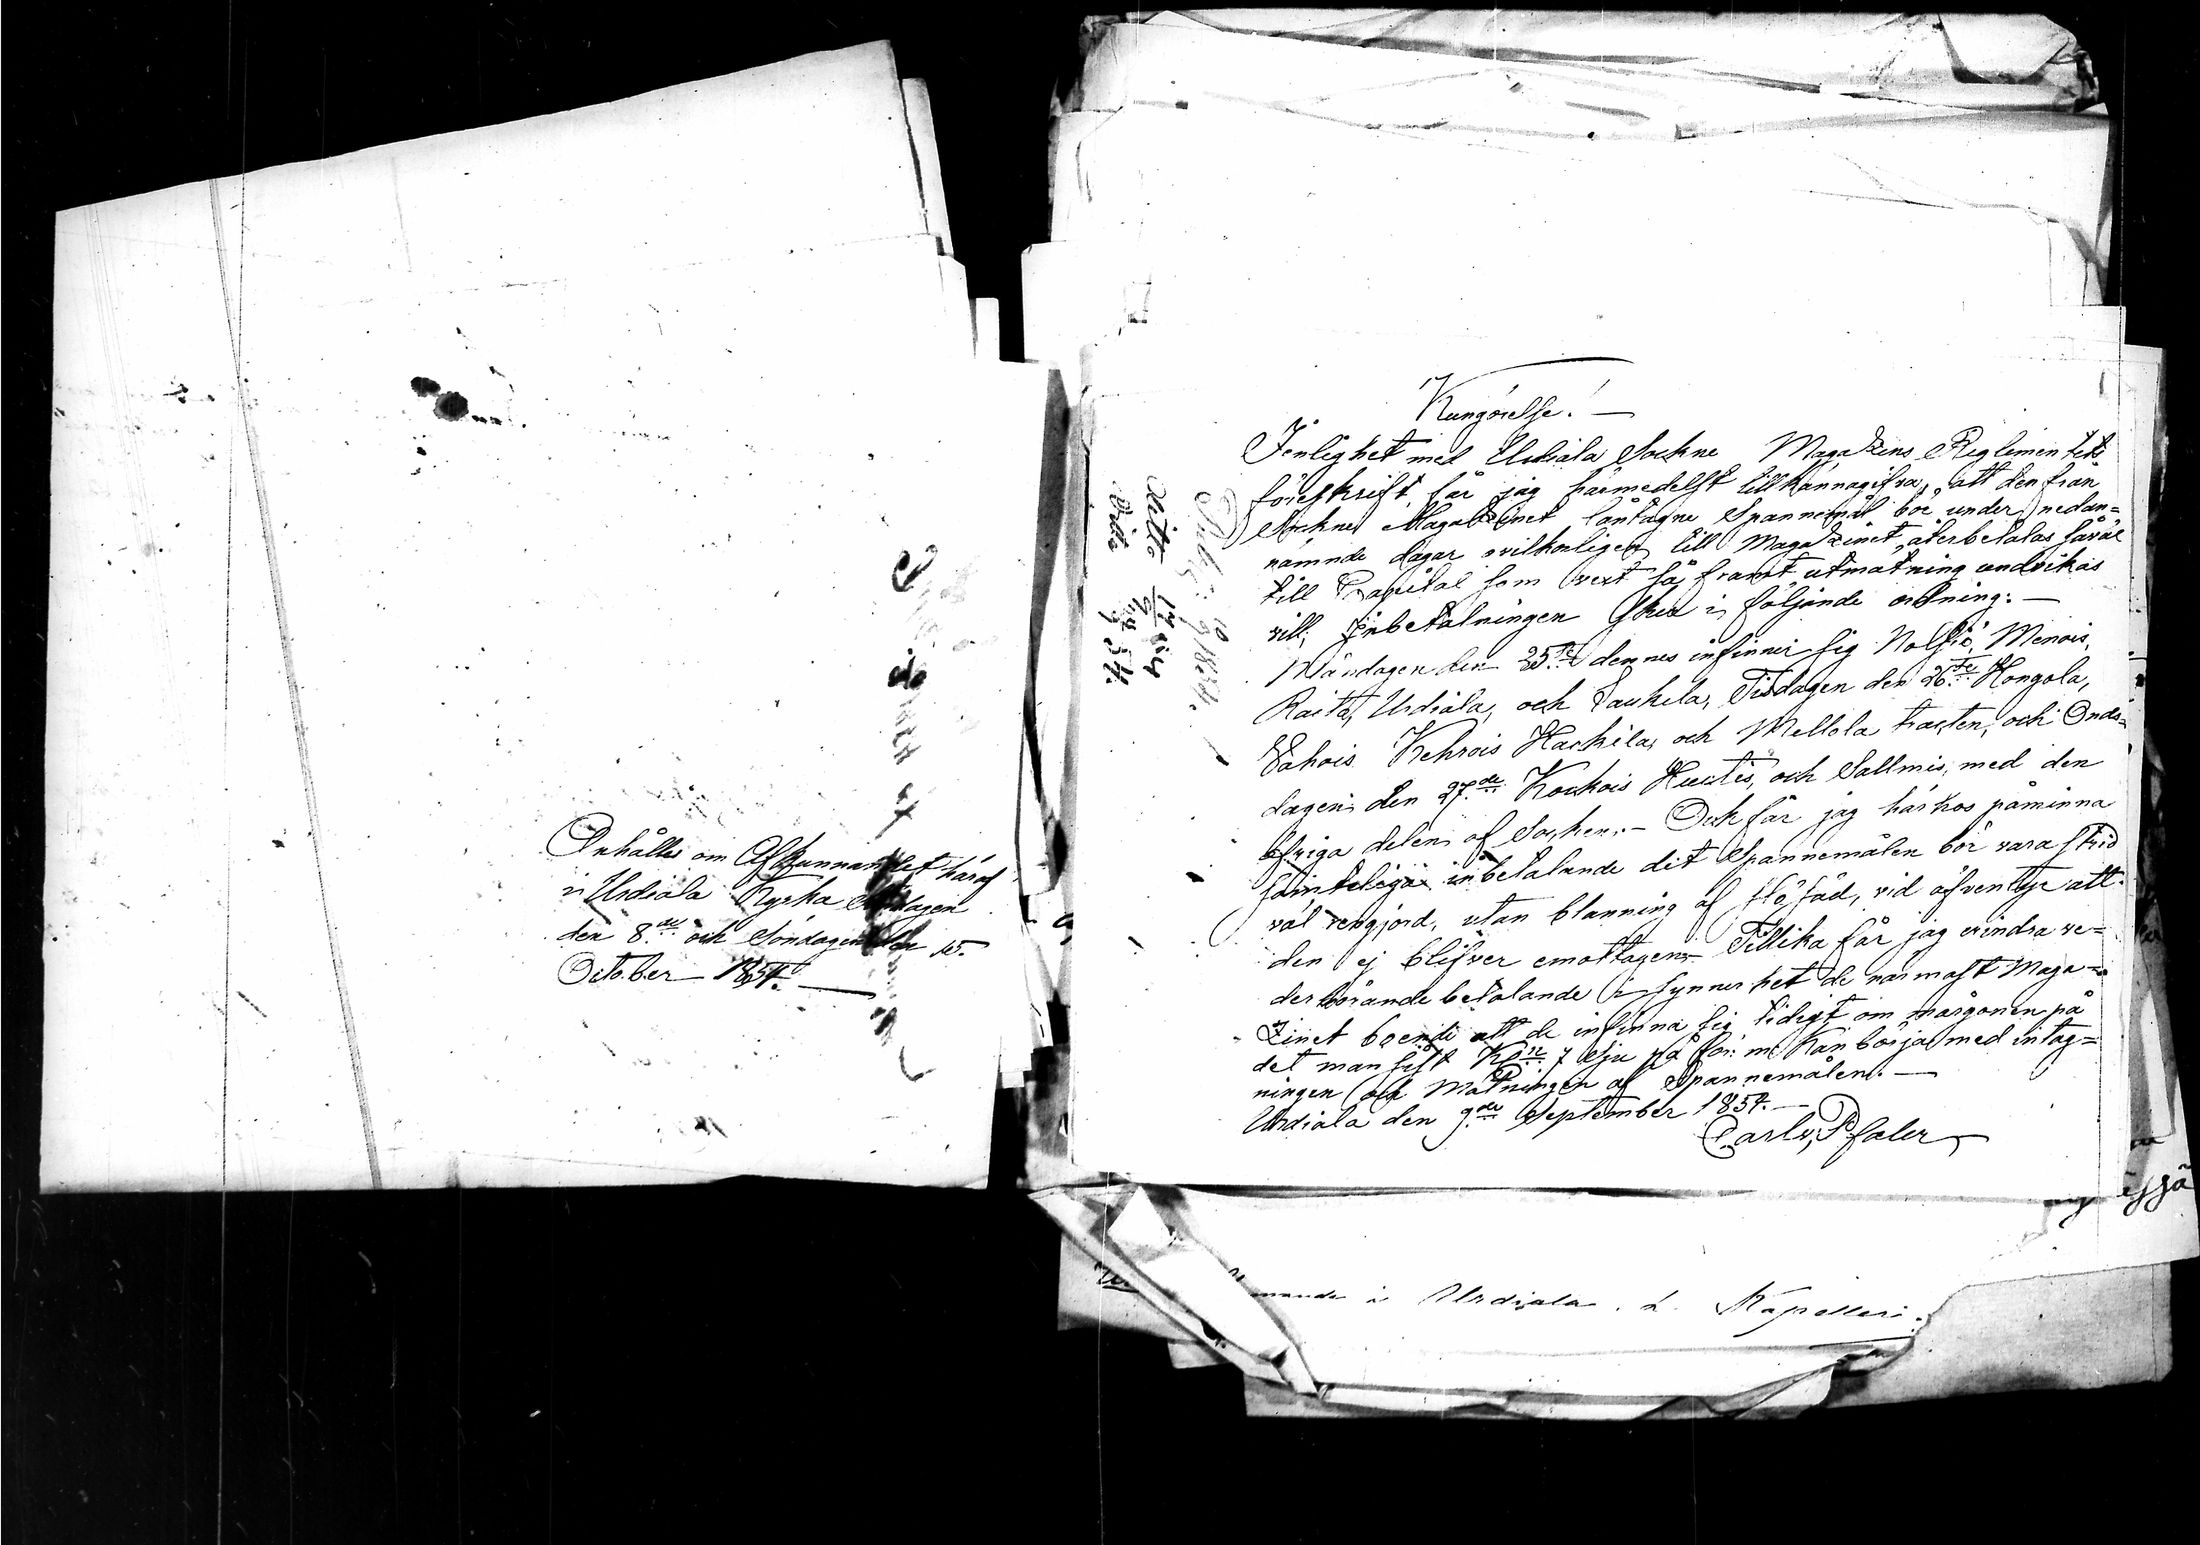 Anhålles om Afkunnandet häraf
i Urdiala Kyrka
den 8.de och Söndagen den 15.
October 1854.
Kungörelse!
Jenlighet med Urdiala Sockne Magazins Reglementets
föreskrift, får jag härmedelst tillkännagifva, att den från
Sockne Magazinet låntagne Spannemål bör under nedan=
nämnde dagar ovilkorligen till Magazinet återbetalas såväl
till Capital som vext så framt utmätning undvikas
vill; Inbetalningen sker i följande ordning:
Måndagen den 25.te dennes infinner sig Nolsio, Menois,
Raito, Urdiala, och Laukela, Tisdagen den 26.te Hongola,
Vahois Kehrois Hackila, och Mellola tracten, och Onds=
dagen den 27.de Kockois Huutis, och Sallmis, med den
öfriga delen af Socken. Och får jag härhos påminna
samtelige inbetalande det Spannemålen bör vara strid
väl rengjord, utan blanning af Höstäd, vid äfventyr att
den ej blifver emottagen. Tillika får jag erindra ve=
derbörande betalande i synnerhet de närmast Maga=
zinet boende att de infinna sig tidigt om morgonen på
det man sist Klon 7 sju på för: m: kan börja med intag=
ningen och Mätningen af Spannemålen.
Urdiala den 9.de September 1854.
Carl v: Pfaler
Publ: 10/9 1854.
Ditto 17/9 54
Dito 24/9 54.
i Urdiala. Kapellers